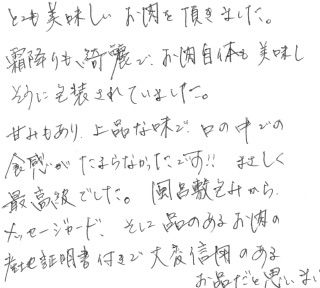 とても美味しいお肉を頂きました。
霜降りも綺麗で、お肉自体も美味し
そうに包装されていました。
甘みもあり、上品な味で、口の中での
食感がたまらなかったです!! まさしく
最高級でした。風呂敷包みから、
メッセージカード、そして品のあるお肉の
産地証明書付きで大変信用のある
お品だと思いまし